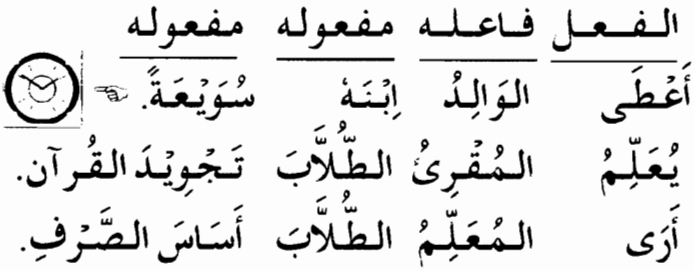 الفعل فاعله مفعوله مفعوله
أَعْطَى الوَالِدُ اِبْنَهُ سُوَيْعَةً.
يُعَلِّمُ المُقْرِئُ الطُّلَّابَ تَجْوِيْدَ القُرآن.
أَرَى المُعَلِّمُ الطُّلَّابَ أَسَاسَ الصَّرْفِ.